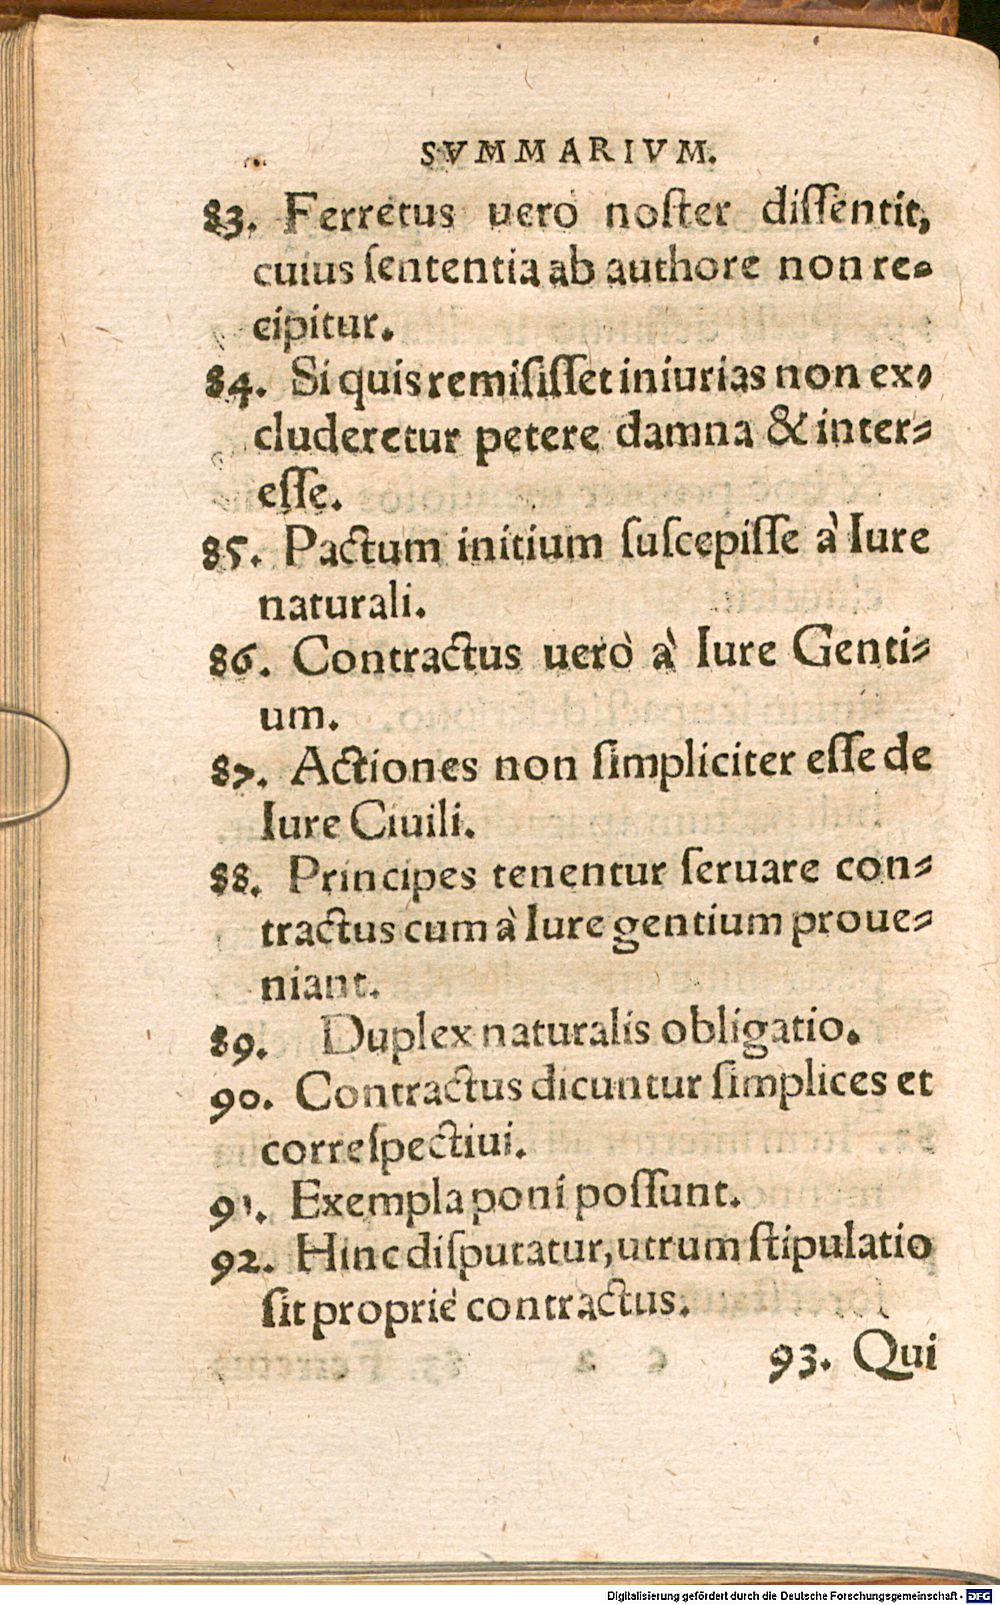 SVMMARIVM.
83. Ferretus uero noſter diſſentit,
cuius ſententia ab authore non re-
cipitur.
84. Si quis remiſiſſet iniurias non ex-
cluderetur petere damna & inter-
eſſe.
85. Pactum initium ſuſcepiſſe à Iure
naturali.
86. Contractus uerò à Iure Genti-
um.
87. Actiones non ſimpliciter eſſe de
Iure Ciuili.
88. Principes tenentur ſeruare con-
tractus cum à Iure gentium proue-
niant.
89. Duplex naturalis obligatio.
90. Contractus dicuntur ſimplices et
correſpectiui.
91. Exempla poni poſſunt.
92. Hinc diſputatur, utrum ſtipulatio
ſit propriè contractus.
93. Qui
Digitalisierung gefördert durch die Deutsche Forschungsgemeinschaft - DFG